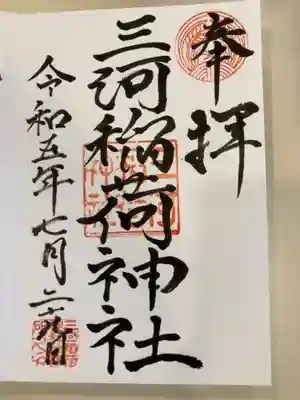 奉拝
三河稲荷神社
令和五年七月二十九日